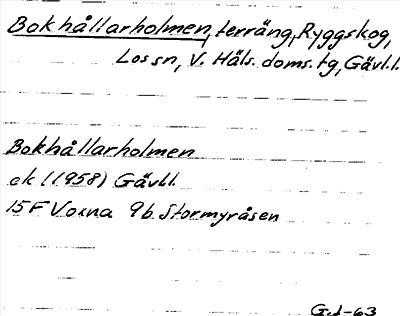 Bokhållarholmen, terräng, Ryggskog,
Lossn, V. Häls. doms. tg, Gävl.l.
Bokhållarholmen
ek (1958) Gävll.
15F Voxna 9b Stormyråsen
G.d-63